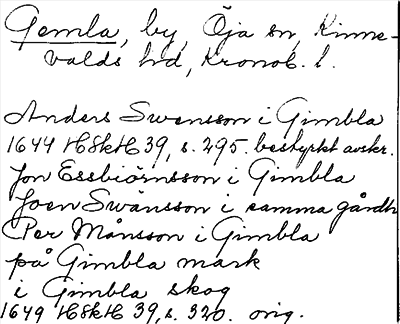 Gemla, by, Öja sn, Kinne-
valds hd, Kronob. l.
Anders Swensson i Gimbla
1644 HSkH 39, s. 295. bestyrkt avskr.
Jon Essbiörnsson i Gimbla
Joen Swänsson i samma gårdh
Per Månsson i Gimbla
på Gimbla mark
i Gimbla skog
1649 HSkH 39, s. 320. orig.